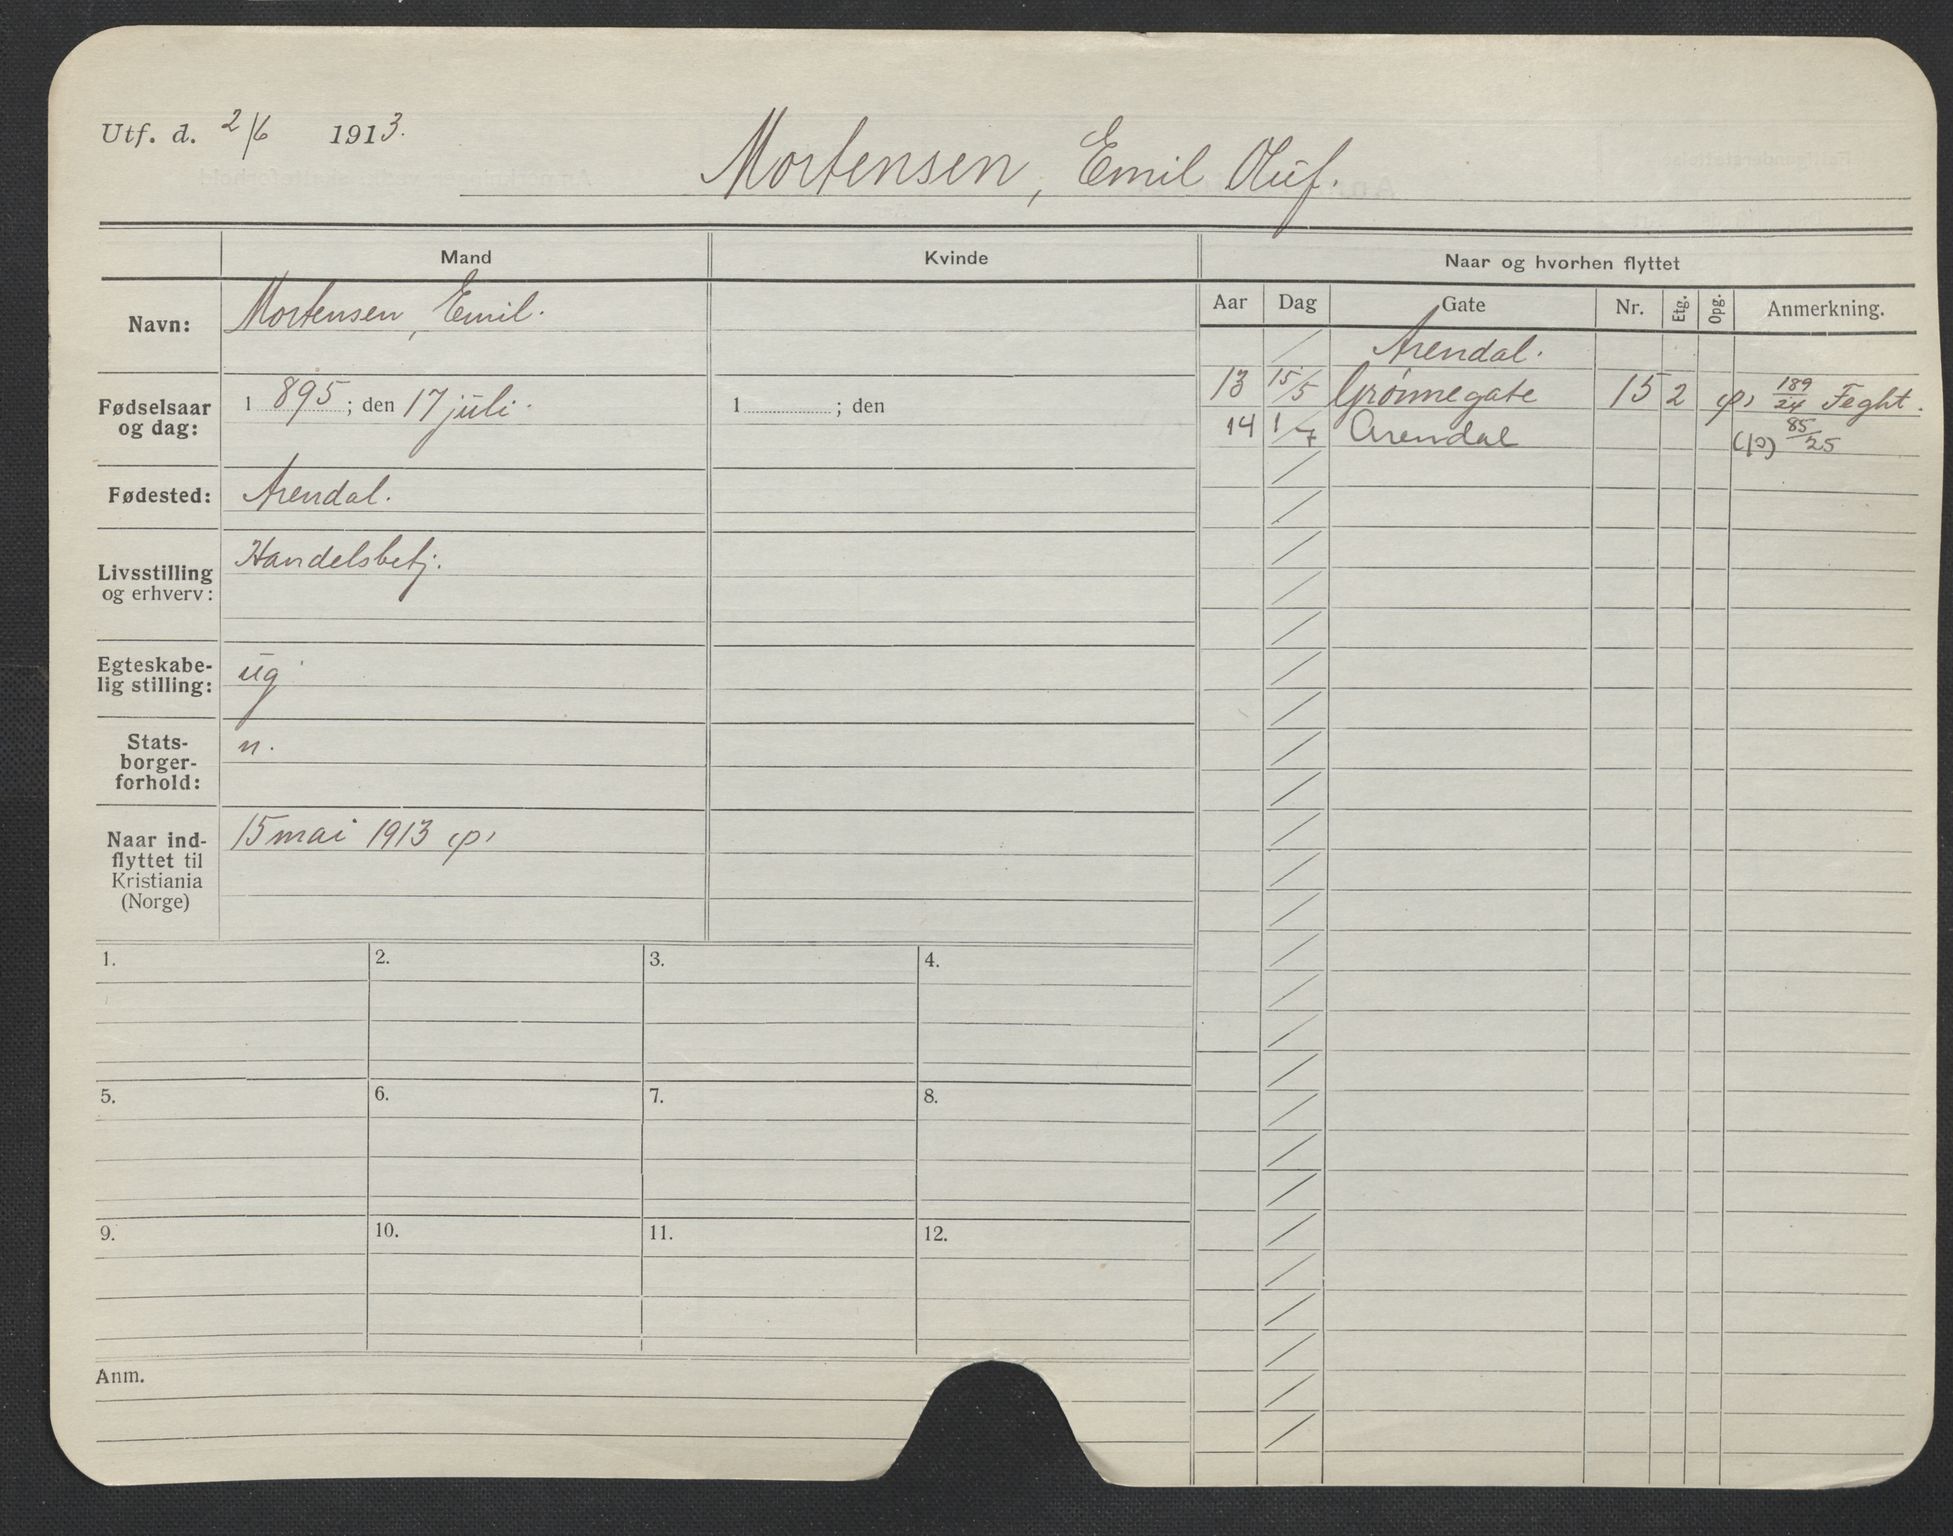 Utf. d. 2/6 1913.
Mortensen, Emil Oluf.
Mand
Kvinde
Naar og hvorhen flyttet
Aar Dag Gate Nr. Etg. Opg. Anmerkning.
Navn: Mortensen, Emil.
Fødselsaar
og dag:
1895; den 17 juli.
1 ; den
Fødested: Arendal.
Livsstilling
og erhverv:
Handelsbetj.
Egteskabe-
lig stilling:
ug
Stats-
borger-
forhold:
n.
Naar ind-
flyttet til
Kristiania
(Norge)
15 mai 1913 (p)
Arendal.
13 15/5 Grønnegate 15 2 (p) 189/24 Feght.
14 1/7 Arendal (p) 85/25
1. 2. 3. 4.
5. 6. 7. 8.
9. 10. 11. 12.
Anm.